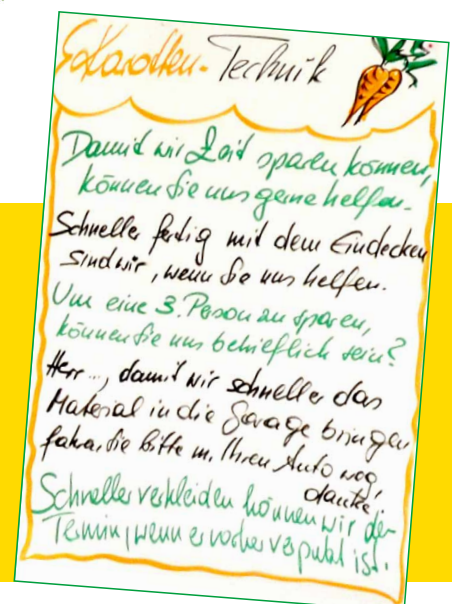 Karotten-Technik
Damit wir Zeit sparen können,
können Sie uns gerne helfen.
Schneller fertig mit dem Eindecken
sind wir, wenn Sie uns helfen.
Um eine 3. Person zu sparen,
können Sie uns behilflich sein?
Herr..., damit wir schneller das
Material in die Garage bringen
fahren Sie bitte m. Ihren Auto weg,
danke!
Schneller verkleiden können wir den
Termin, wenn er vorher verputzt ist.